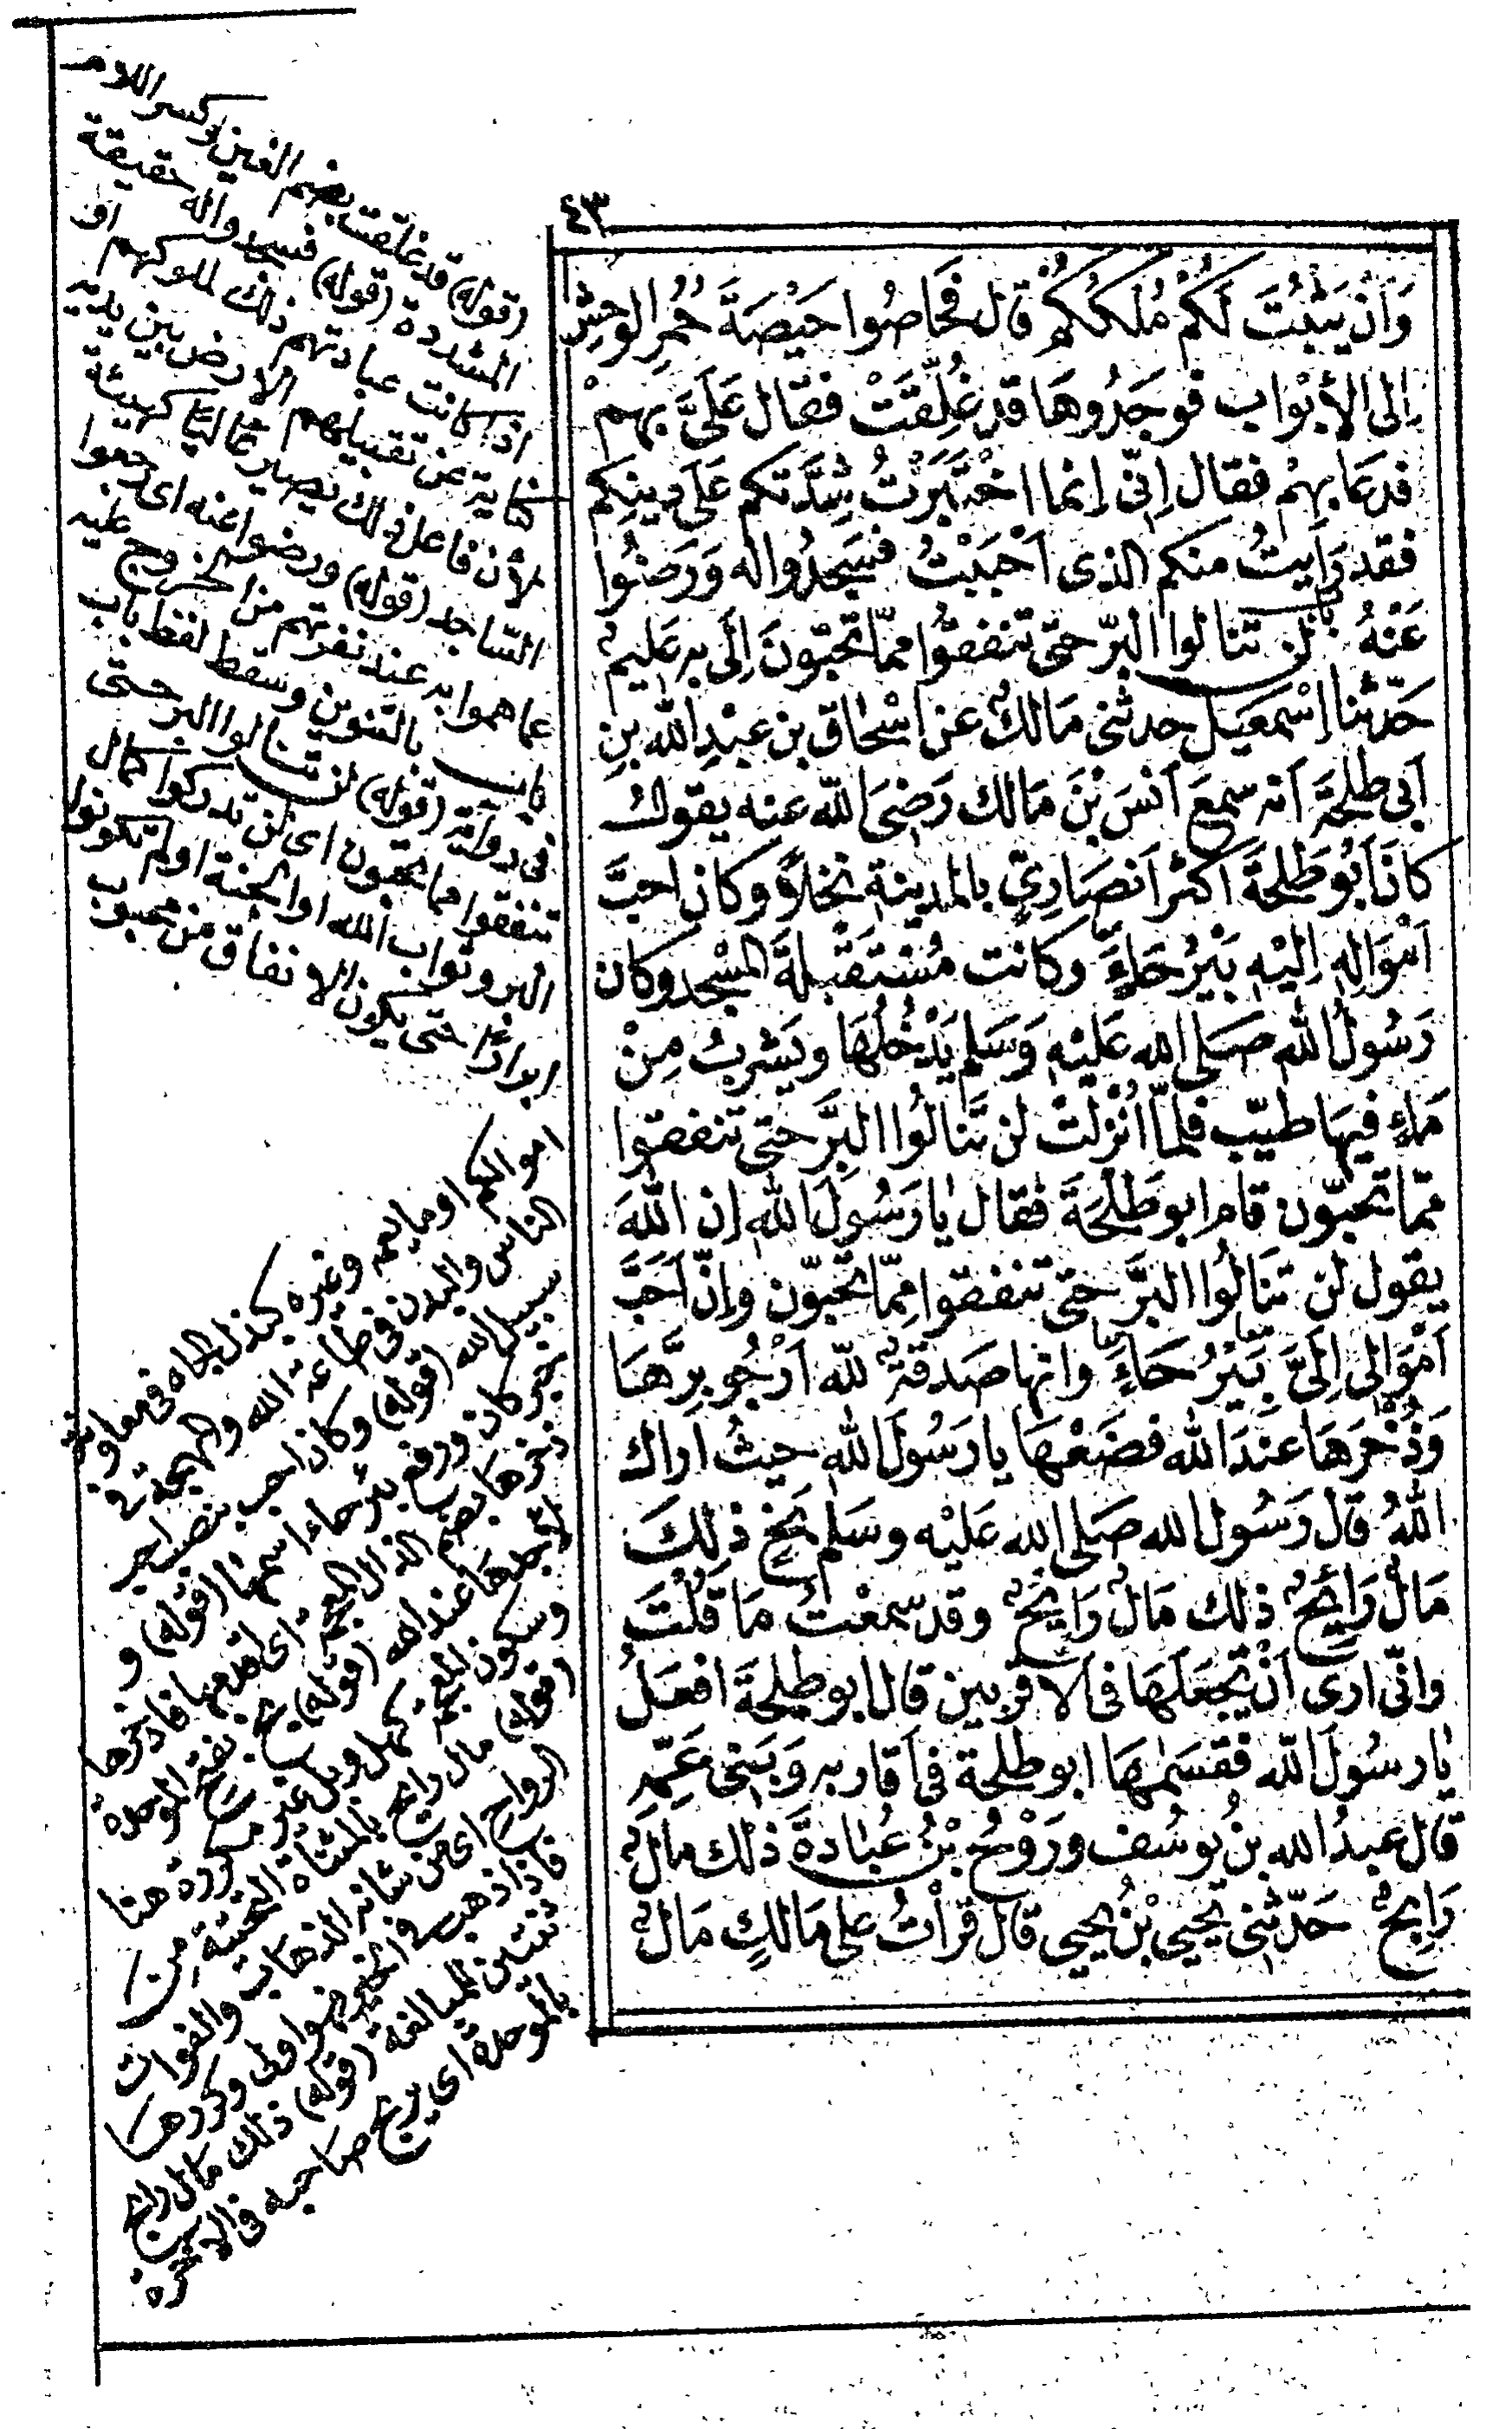 ٤٣
وَاَنْ يَثْبُتَ لَكُمْ مُلْكُكُمْ قال فحَاصُوا حَيْصَةَ حُمُرِ الوحشِ
إلى الأبْوَاب فوَجَدُوهَا قد غُلِّقَتْ فقال عَلَىَّ بهمْ
فدعَا بهِمْ فقال اِنّى اِنما اخْتَبَرْتُ شِدَّتكم عَلَى دِينِكم
فقد رَاَيتُ منكم الذى اَحْبَبْتُ فسَجدُوا له وَرَضُوا
عَنْهُ باب لن تنالوا البرّ حتّى تنفقوا ممّا تحبّونَ اِلَى به عَلِيمٌ
حَدّثنا اِسْمعيل حدثنى مَالكٌ عن اسْحاق بن عبْدِ الله بنِ
اَبى طلحَة اَنه سمعَ اَنسَ بْنَ مَالك رَضِىَ الله عنه يقول
كانَ اَبُو طَلحَة اكثرَ اَنصَارِىٍّ بالمدِينةِ نخلًا وكان احبَّ
اَمْوَالِهِ اِلَيْهِ بَيْرُحَاءَ وكانت مُسْتَقْبِلةَ المسْجد وكان
رَسُولُ الله صَلى الله عَليْهِ وَسَلم يَدْخُلُهَا ويَشربُ مِنْ
مَاءٍ فيهَا طَيّب فلمّا اُنْزِلَتْ لن تَنالُوا البِرَّ حتى تنفقوا
ممّا تحبّون قام ابو طَلْحَةَ فقال يَا رَسُولَ الله اِن اللهَ
يقول لن تنَالُوا البرَّ حتى تنفقوا مِمّا تحبّون وإنّ اَحَبَّ
اَمْوَالى اِلَىَّ بَيْرُحَاءٍ وانها صَدقةٌ لله اَرْجُو بِرَّهَا
وَذُخْرَهَا عندَ الله فضَعْهَا يا رَسُولَ الله حيثُ اراك
اللهُ قال رَسُول الله صَلى الله عَليْه وسَلم بَخٍ ذلكَ
مَالٌ رَايِحٌ ذلك مَالٌ رَايِحٌ وقد سمعْتُ مَا قُلْتَ
وانّى ارَى اَنْ تجعَلَهَا فى الاقربين قال ابو طلحَة افعَلُ
يا رسُولَ الله فقسَمهَا ابو طلحة فى اَقاربه وَبَنى عَمِّهِ
قال عبدُ الله بنُ يوسُف ورَوْحُ بْنُ عُبَادةَ ذلك مالٌ
رَابِحٌ حَدّثنى يحيى بْنُ يحيى قال قرأتُ على مَالكٍ مَالٌ
(قوله) قد غلقت بضم الغين وكسر اللام
المشددة (قوله) فسجدوا له حقيقة
اذ كانت عبادتهم ذلك لملوكهم او
كناية عن تقبيلهم الارض بين يديه
لأن فاعل ذلك يصير غالبًا كهيئة
الساجد (قوله) ورضوا عنه اى رجعوا
عما هموا به عند نفرتهم من الخروج عليه
باب بالتنوين وسقط لفظ باب
فى رواية (قوله) لن تنالوا البر حتى
تنفقوا مما تحبون اى لن تدركوا كمال
البر وثواب الله او الجنة او لم تكونوا
ابرارًا حتى يكون الانفاق من محبوب
اموالكم او ما يعمه وغيره كبذل الجاه فى معاونة
الناس والبدن فى طاعة الله والمهجة فى
سبيل الله (قوله) وكان احب بنصب احب
خبر كان ورفع بئرحاء اسمها (قوله) و
ذخرها بضم الذال المعجمة اى اقدمها فادخرها
لاجدها عند الله (قوله) بخ بفتح الموحدة
وسكون المعجمة كهل وبل غير مكررة هنا
(قوله) مال رايح بالمثناة التحتية من
الرواح اى من شانه الذهاب والفوات
فاذا ذهب فى الخير فهو اولى وكررها
ثنتين للمبالغة (قوله) ذلك مال رابح
بالموحدة اى يربح صاحبه فى الاخرة